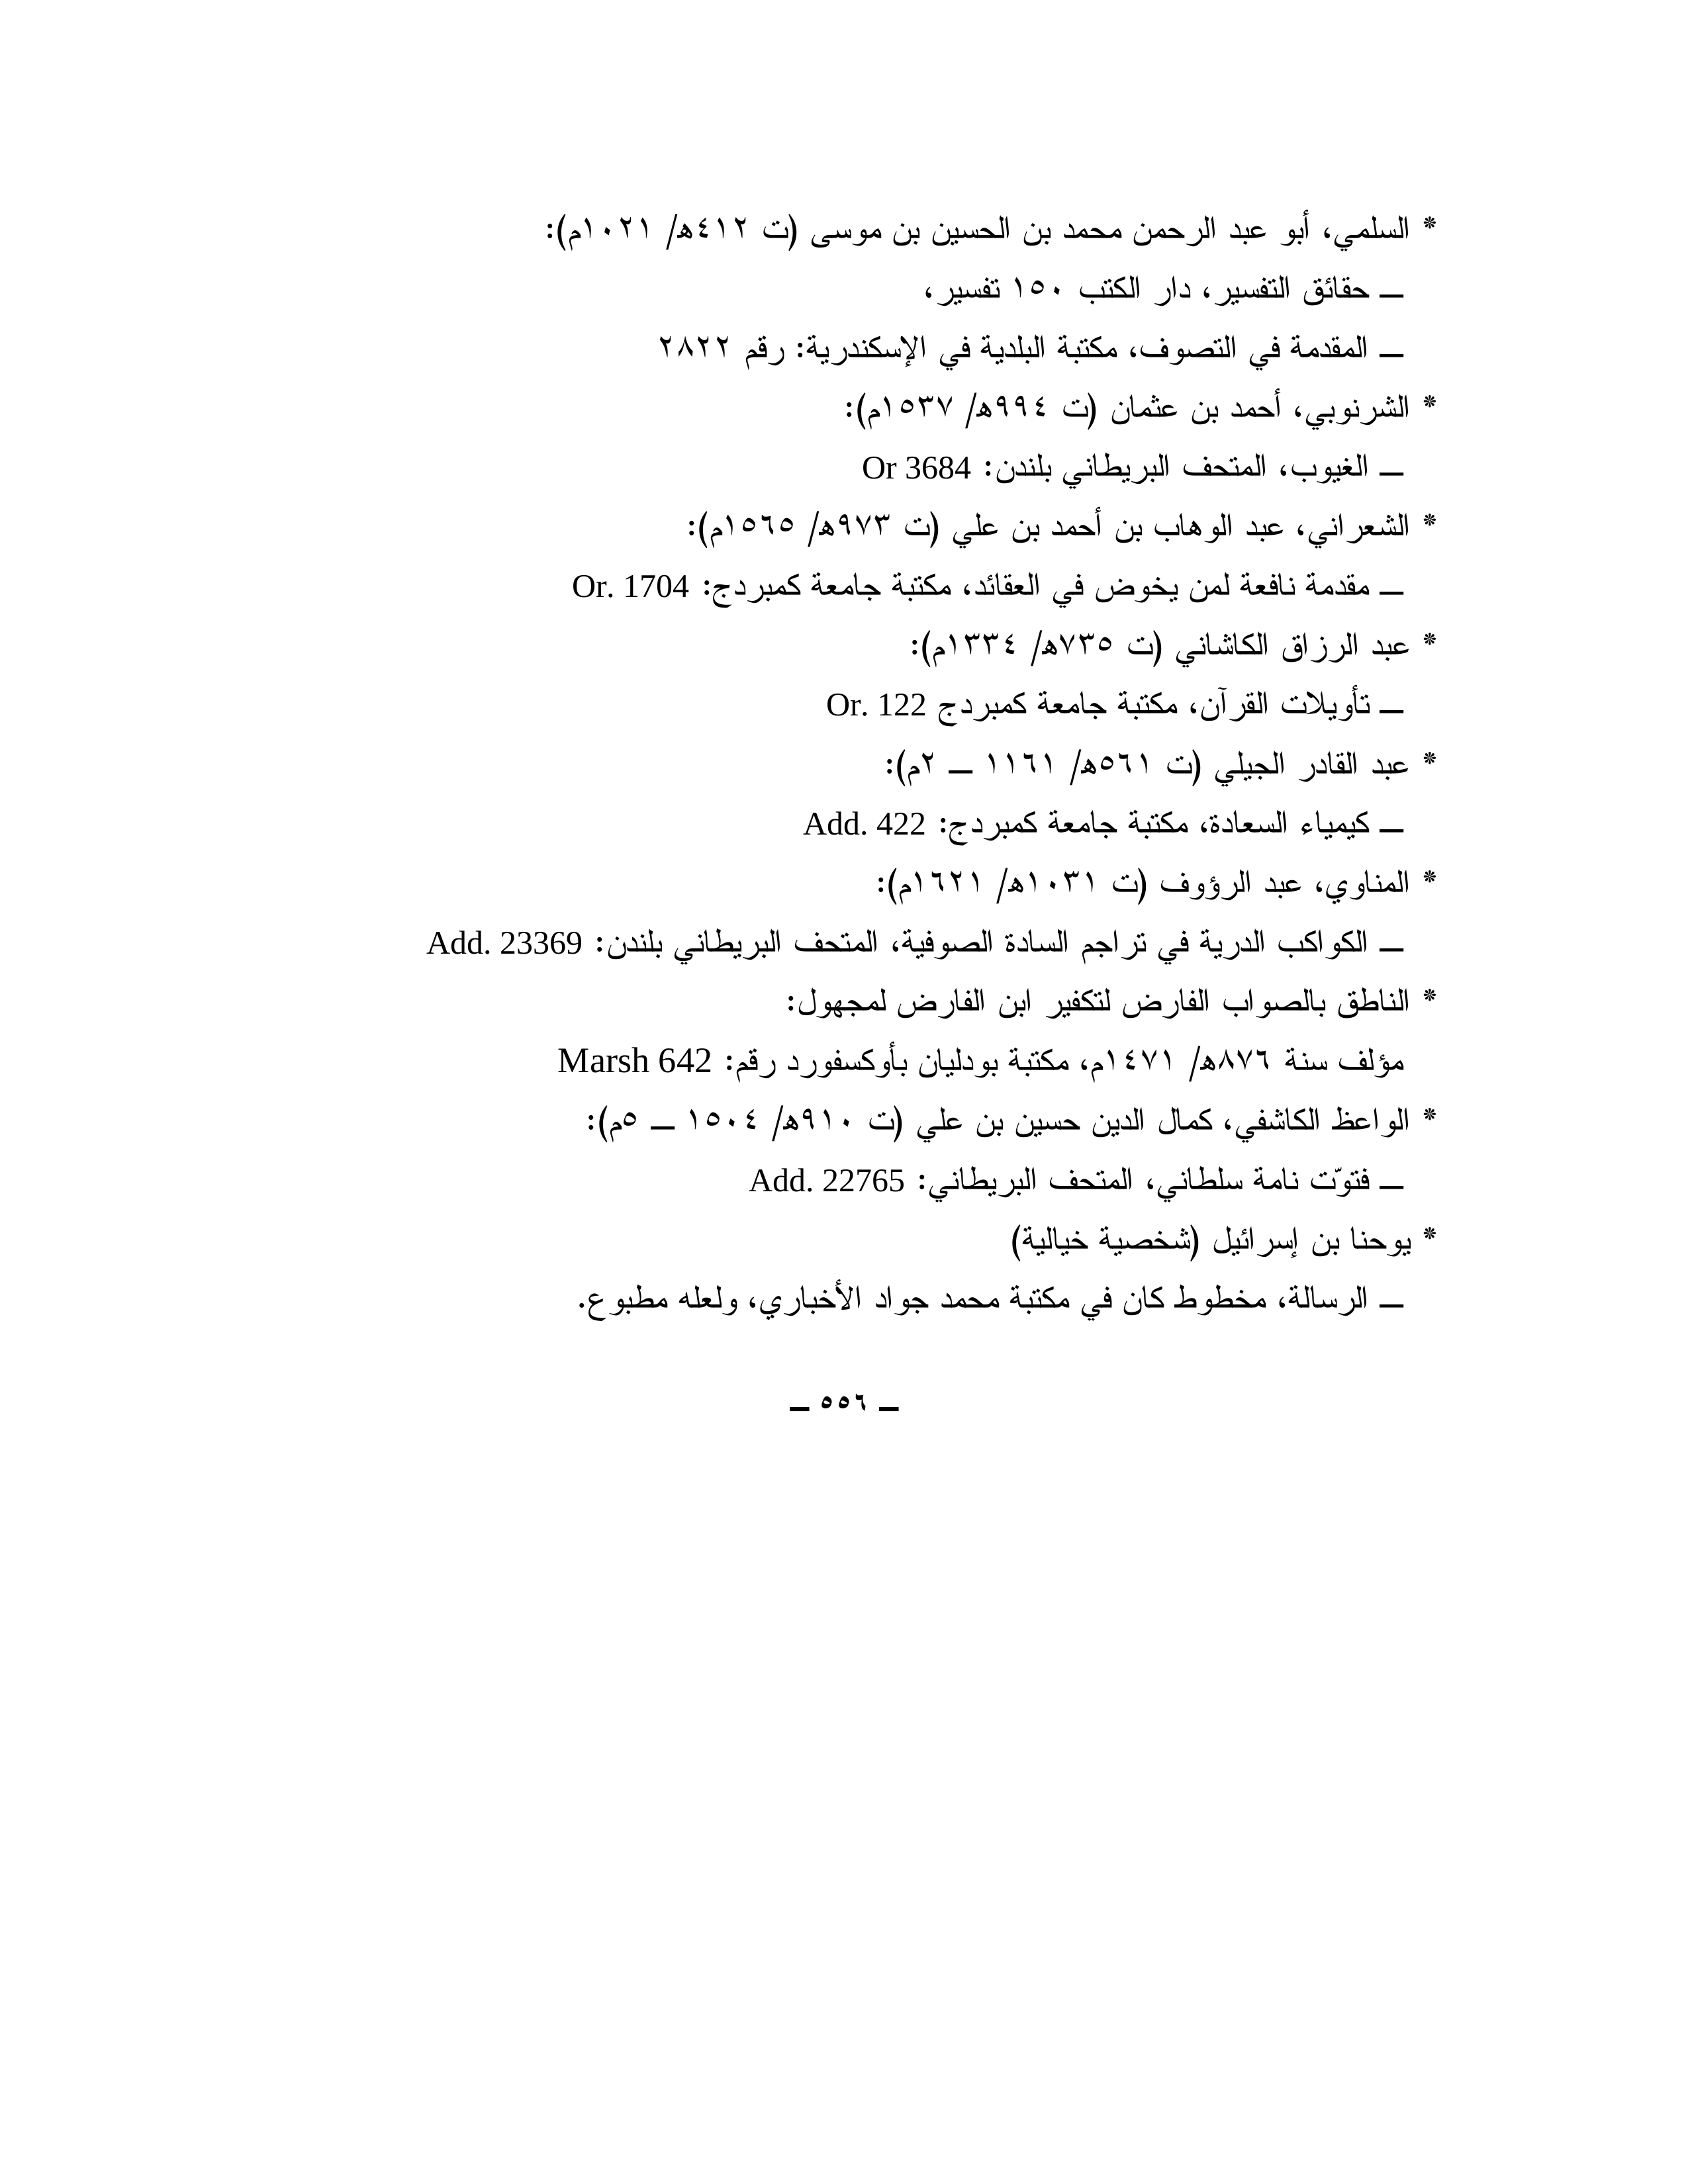 * السلمي، أبو عبد الرحمن محمد بن الحسين بن موسى (ت ٤١٢هـ/ ١٠٢١م):
ــ حقائق التفسير، دار الكتب ١٥٠ تفسير،
ــ المقدمة في التصوف، مكتبة البلدية في الإسكندرية: رقم ٢٨٢٢
* الشرنوبي، أحمد بن عثمان (ت ٩٩٤هـ/ ١٥٣٧م):
ــ الغيوب، المتحف البريطاني بلندن: Or 3684
* الشعراني، عبد الوهاب بن أحمد بن علي (ت ٩٧٣هـ/ ١٥٦٥م):
ــ مقدمة نافعة لمن يخوض في العقائد، مكتبة جامعة كمبردج: Or. 1704
* عبد الرزاق الكاشاني (ت ٧٣٥هـ/ ١٣٣٤م):
ــ تأويلات القرآن، مكتبة جامعة كمبردج Or. 122
* عبد القادر الجيلي (ت ٥٦١هـ/ ١١٦١ ــ ٢م):
ــ كيمياء السعادة، مكتبة جامعة كمبردج: Add. 422
* المناوي، عبد الرؤوف (ت ١٠٣١هـ/ ١٦٢١م):
ــ الكواكب الدرية في تراجم السادة الصوفية، المتحف البريطاني بلندن: Add. 23369
* الناطق بالصواب الفارض لتكفير ابن الفارض لمجهول:
مؤلف سنة ٨٧٦هـ/ ١٤٧١م، مكتبة بودليان بأوكسفورد رقم: Marsh 642
* الواعظ الكاشفي، كمال الدين حسين بن علي (ت ٩١٠هـ/ ١٥٠٤ ــ ٥م):
ــ فتوّت نامة سلطاني، المتحف البريطاني: Add. 22765
* يوحنا بن إسرائيل (شخصية خيالية)
ــ الرسالة، مخطوط كان في مكتبة محمد جواد الأخباري، ولعله مطبوع.
ــ ٥٥٦ ــ